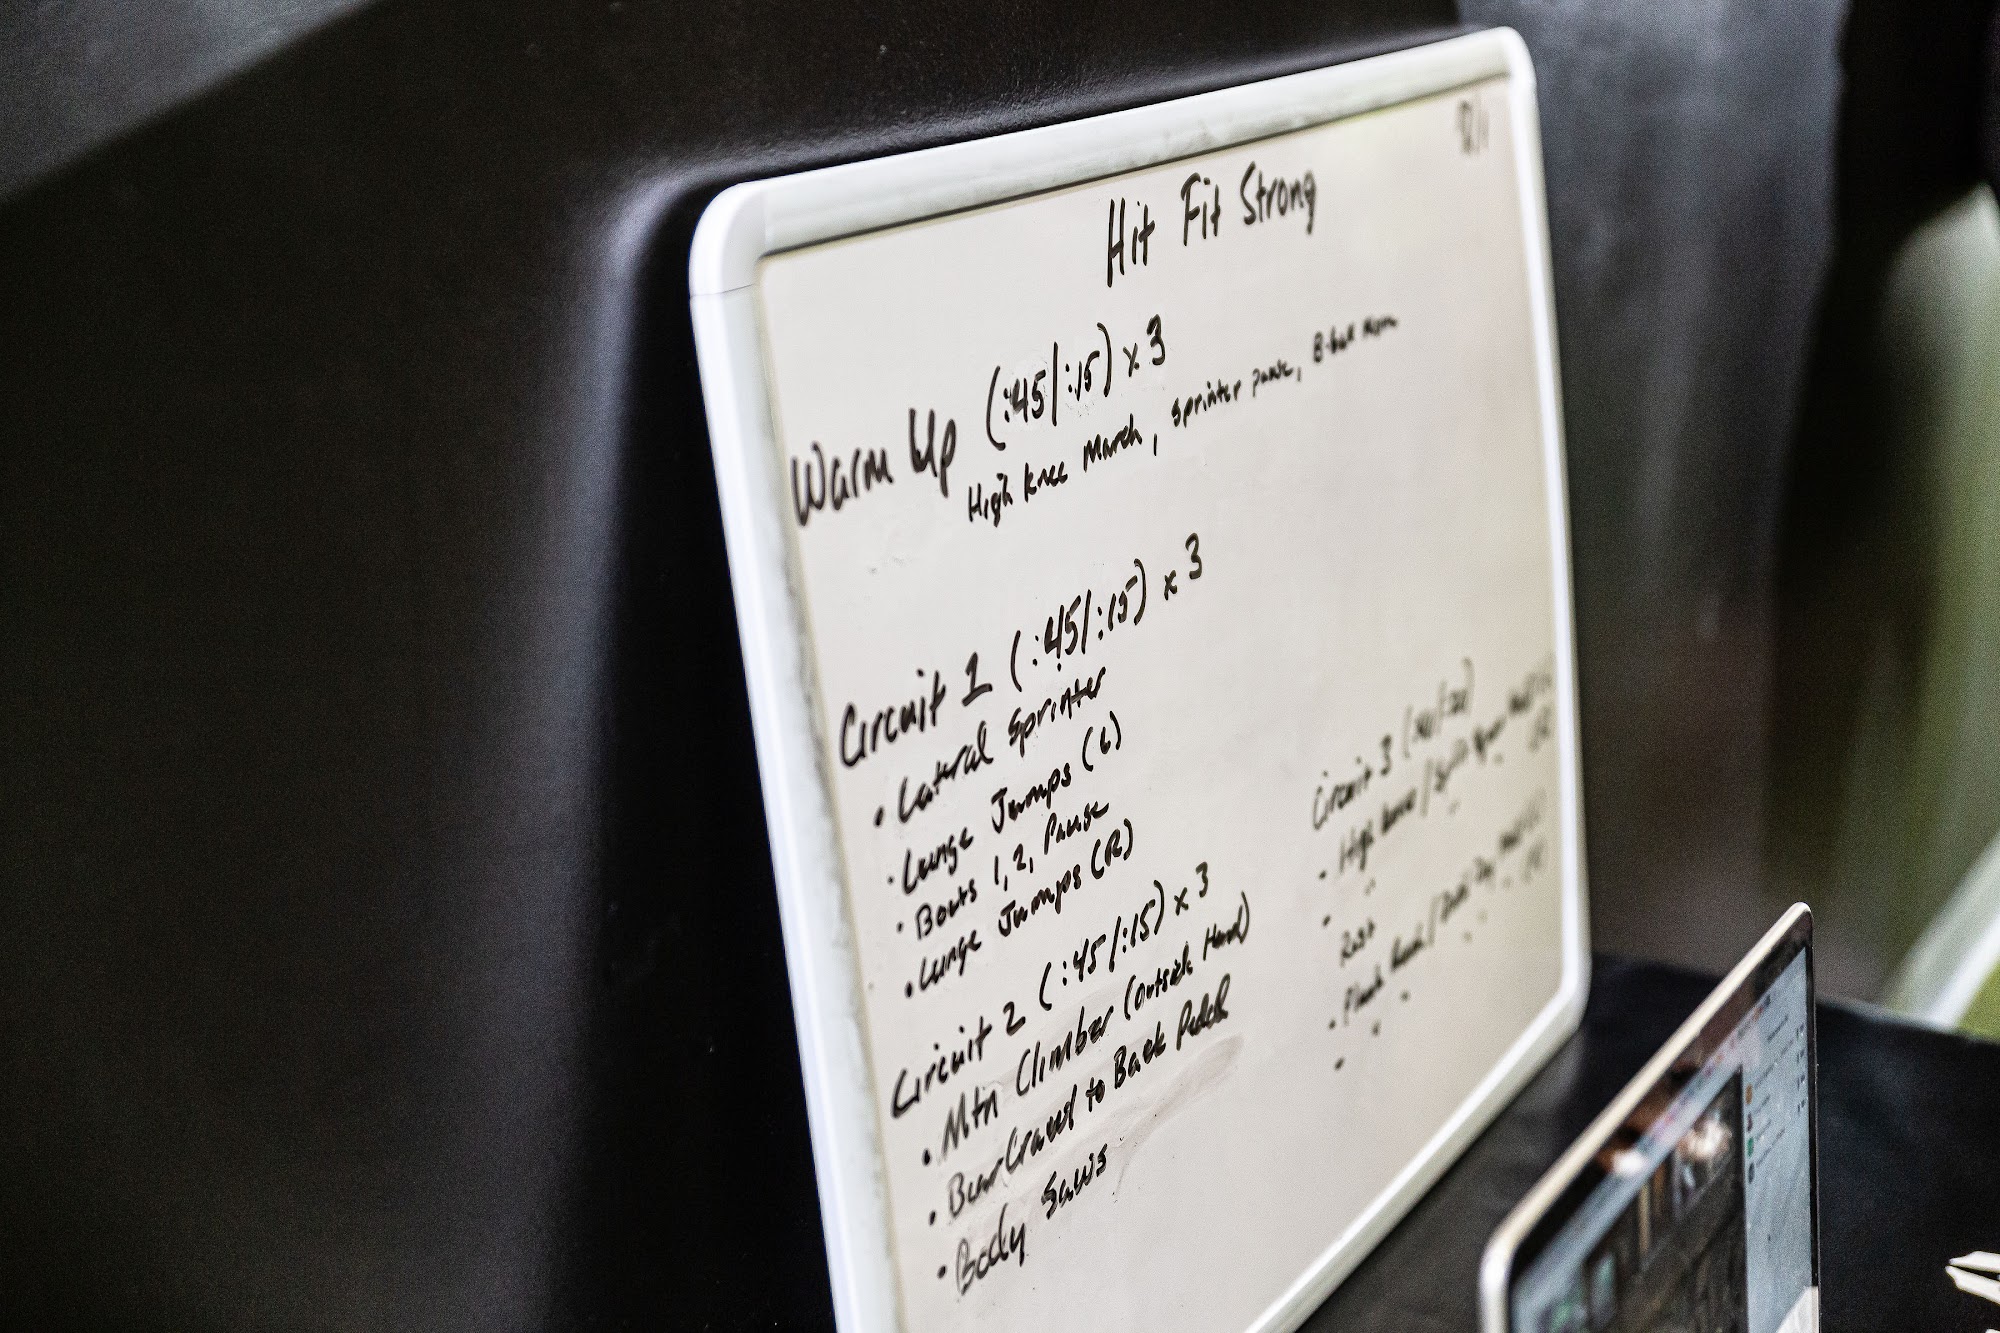 Hit Fit Strong
Warm Up (:45/:15) x 3
High knee March, sprinter pause, B-ball
Circuit 1 (:45/:15) x 3
• Lateral Sprinter
• Lunge Jumps (L)
• Boats 1, 2, Pause
• Lunge Jumps (R)
Circuit 2 (:45/:15) x 3
• Mtn Climber (Outside Hand)
• Bear Crawl to Back Pedal
• Body Saws
Circuit 3
• High knees /
Rest
• Plank